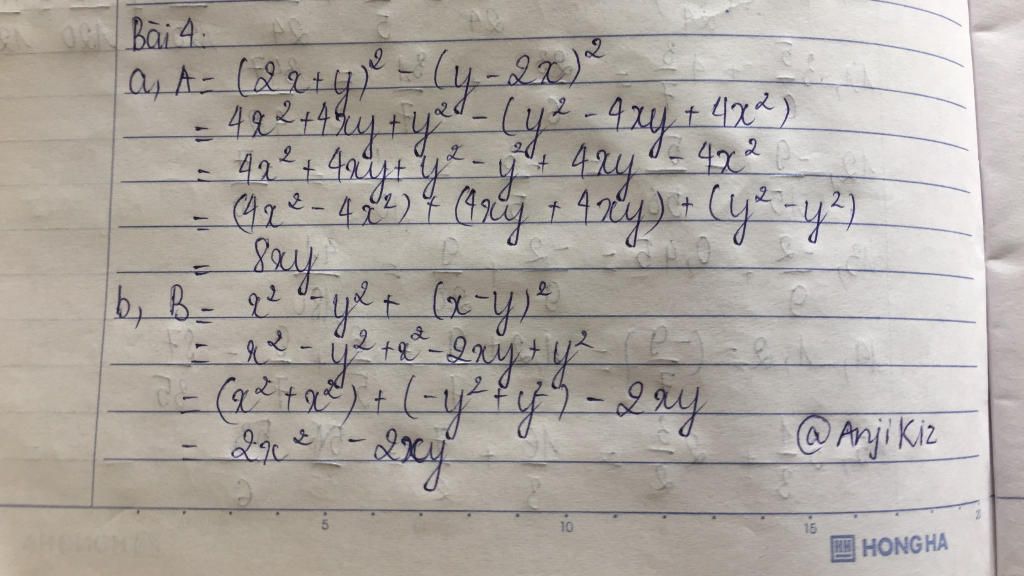 Bài 4:
a, A = (2x+y)² - (y-2x)²
= 4x² + 4xy + y² - (y² - 4xy + 4x²)
= 4x² + 4xy + y² - y² + 4xy - 4x²
= (4x² - 4x²) + (4xy + 4xy) + (y² - y²)
= 8xy
b, B = x² - y² + (x-y)²
= x² - y² + x² - 2xy + y²
= (x² + x²) + (-y² + y²) - 2xy
= 2x² - 2xy
@AnjiKiz
5 10 15
HONG HA